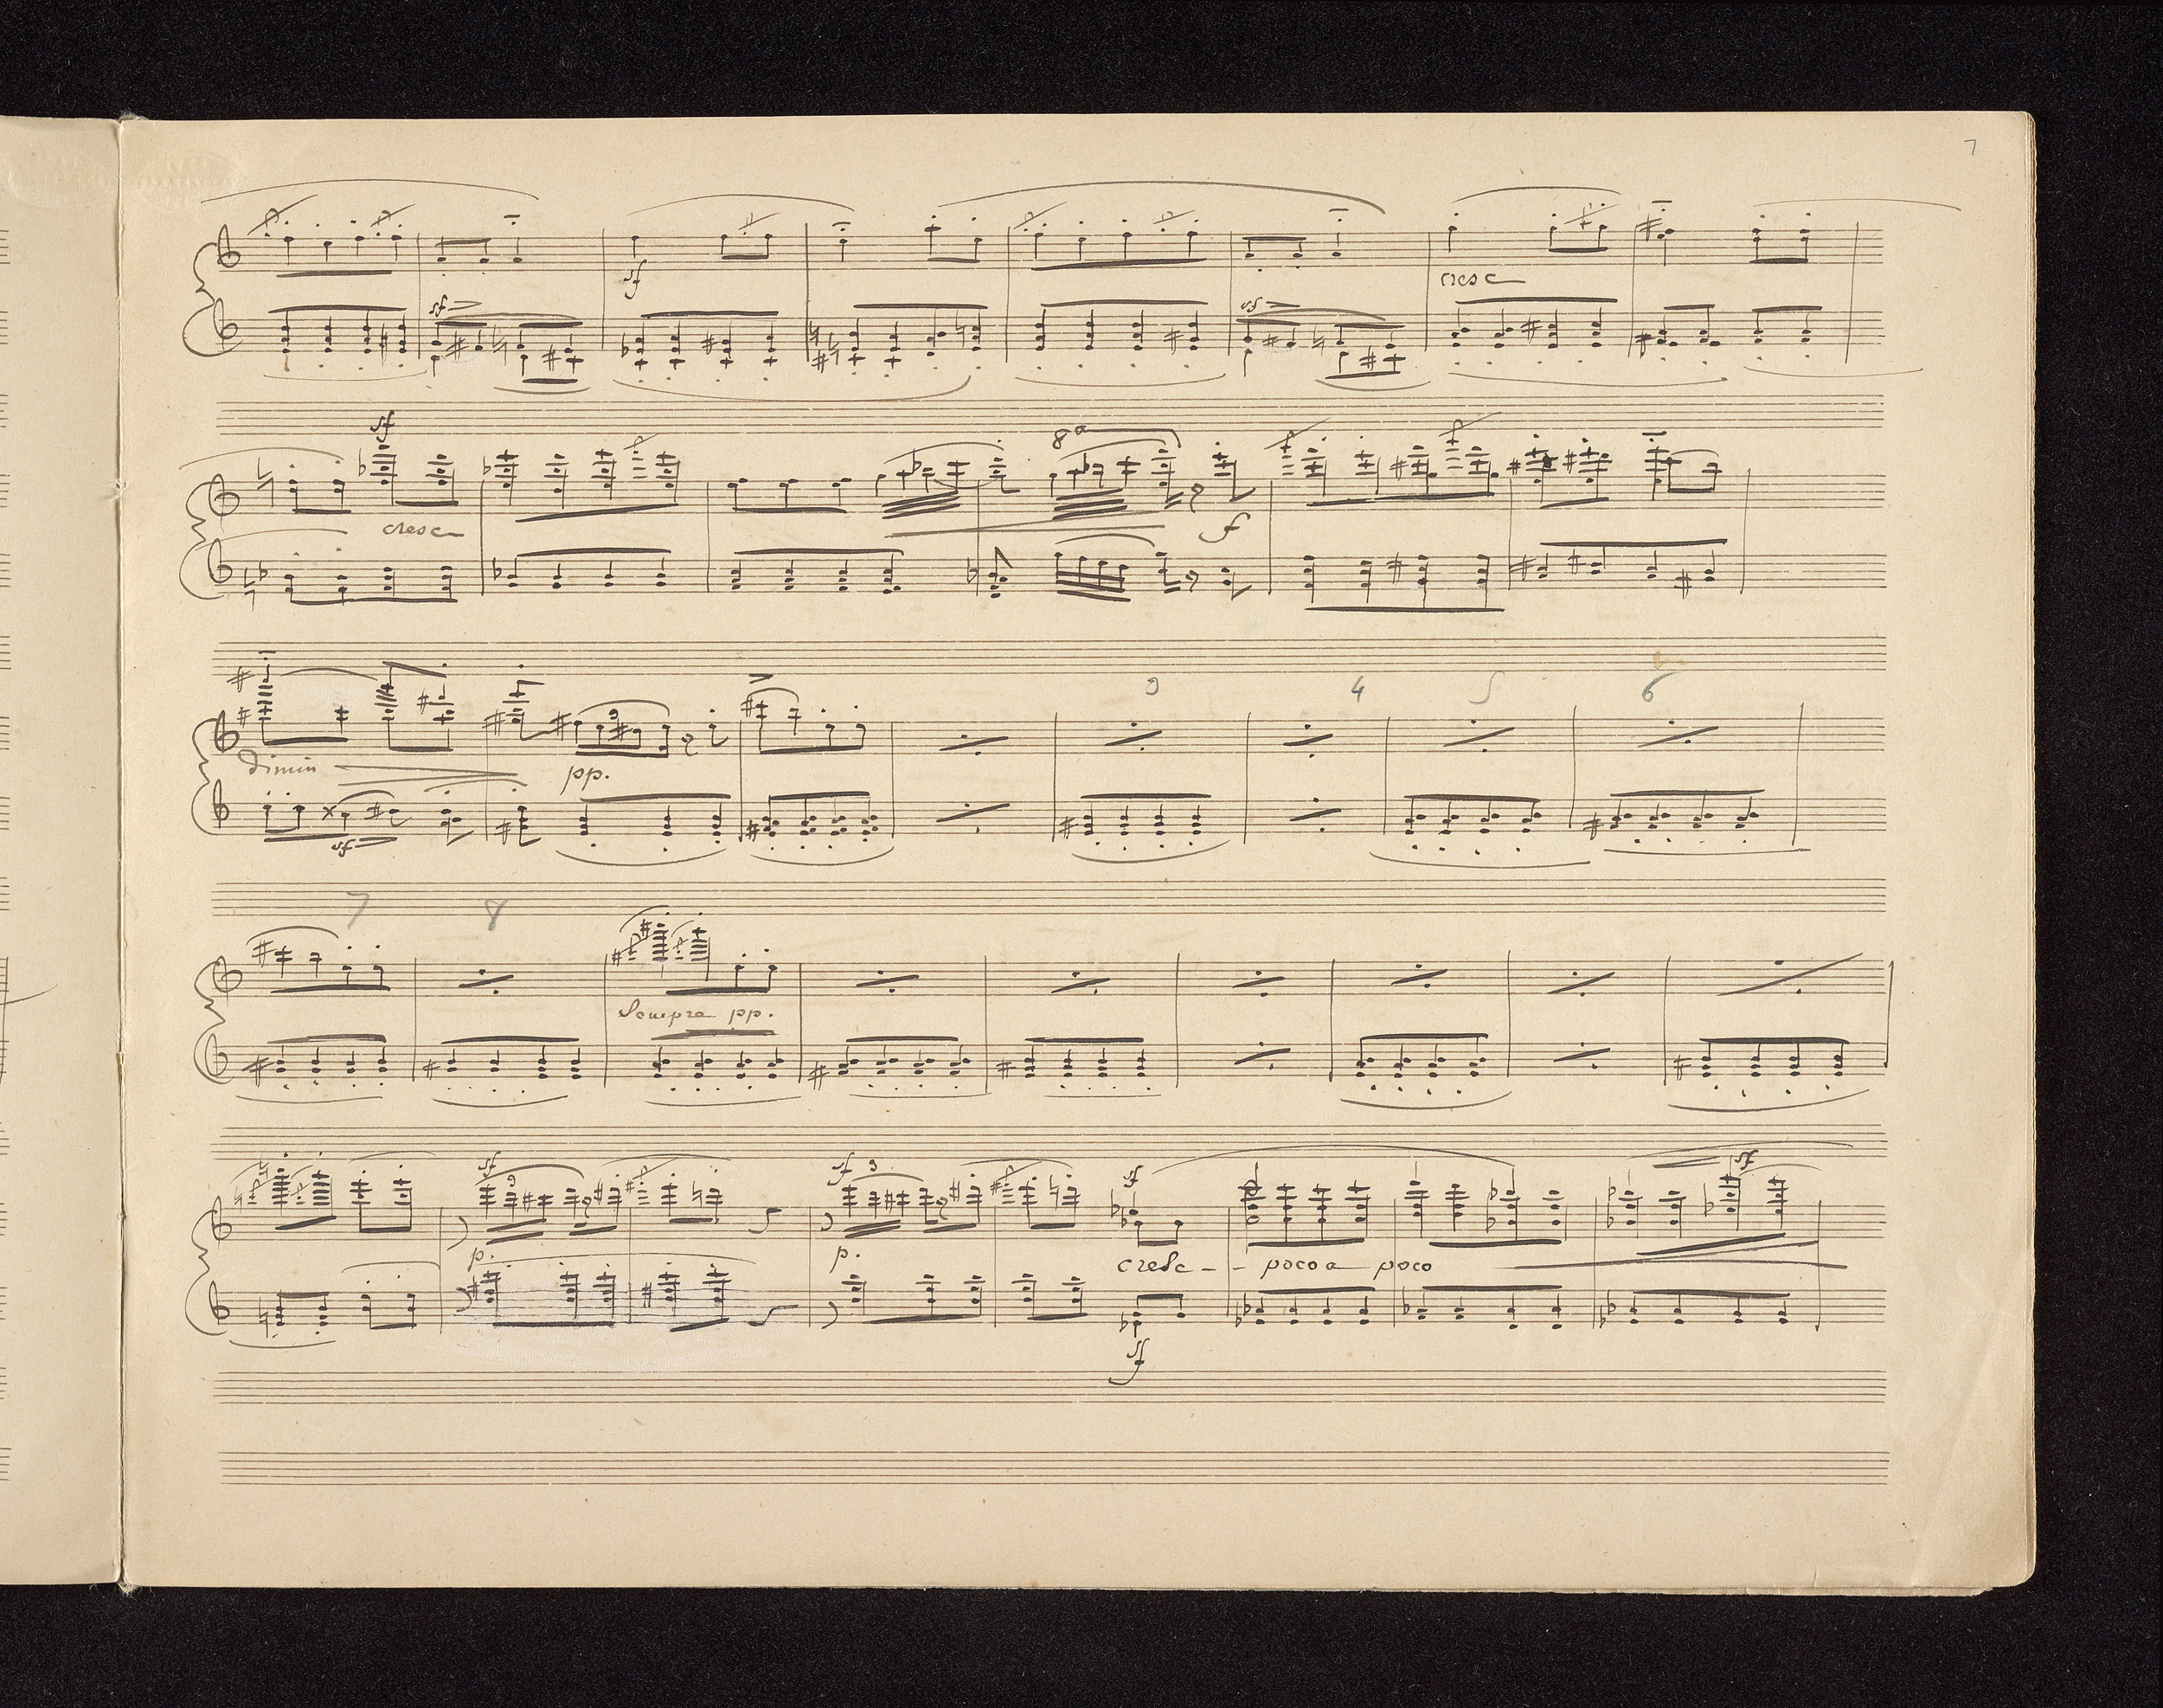 7
sf
sf sf cresc
sf 8a
cresc f
3 4 5 6
dimin pp.
3
sf
7 8
Sempre pp.
sf sf 3 sf sf
3
p. p. cresc - - poco a poco
sf